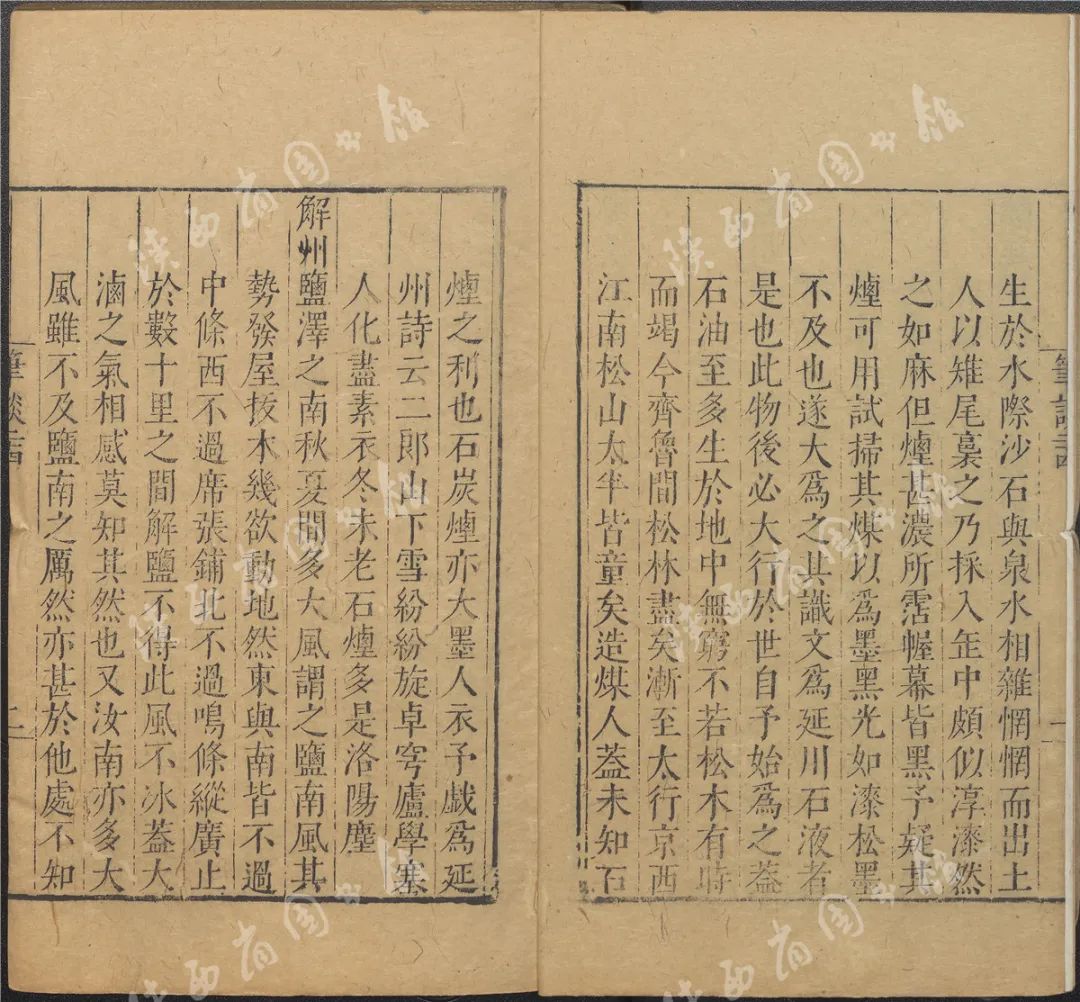 筆談二十四
一
生於水際沙石與泉水相雜惘惘而出土
人以雉尾裛之乃採入缶中頗似淳漆然
之如麻但煙甚濃所霑幄幕皆黑予疑其
煙可用試掃其煤以爲墨黑光如漆松墨
不及也遂大爲之其識文爲延川石液者
是也此物後必大行於世自予始爲之蓋
石油至多生於地中無窮不若松木有時
而竭今齊魯間松林盡矣漸至太行京西
江南松山太半皆童矣造煤人蓋未知石
煙之利也石炭煙亦大墨人衣予戲爲延
州詩云二郎山下雪紛紛旋卓穹廬學塞
人化盡素衣冬未老石煙多是洛陽塵
解州鹽澤之南秋夏間多大風謂之鹽南風其
勢發屋拔木幾欲動地然東與南皆不過
中條西不過席張鋪北不過鳴條縱廣止
於數十里之間解鹽不得此風不冰蓋大
滷之氣相感莫知其然也又汝南亦多大
風雖不及鹽南之厲然亦甚於他處不知
筆談二十四
二
陕西省图书馆